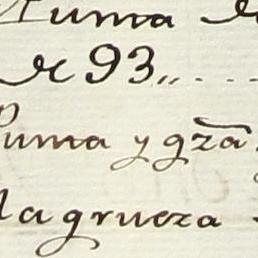 Suma de
de 93,, . . . .
Suma y gza
la grueza